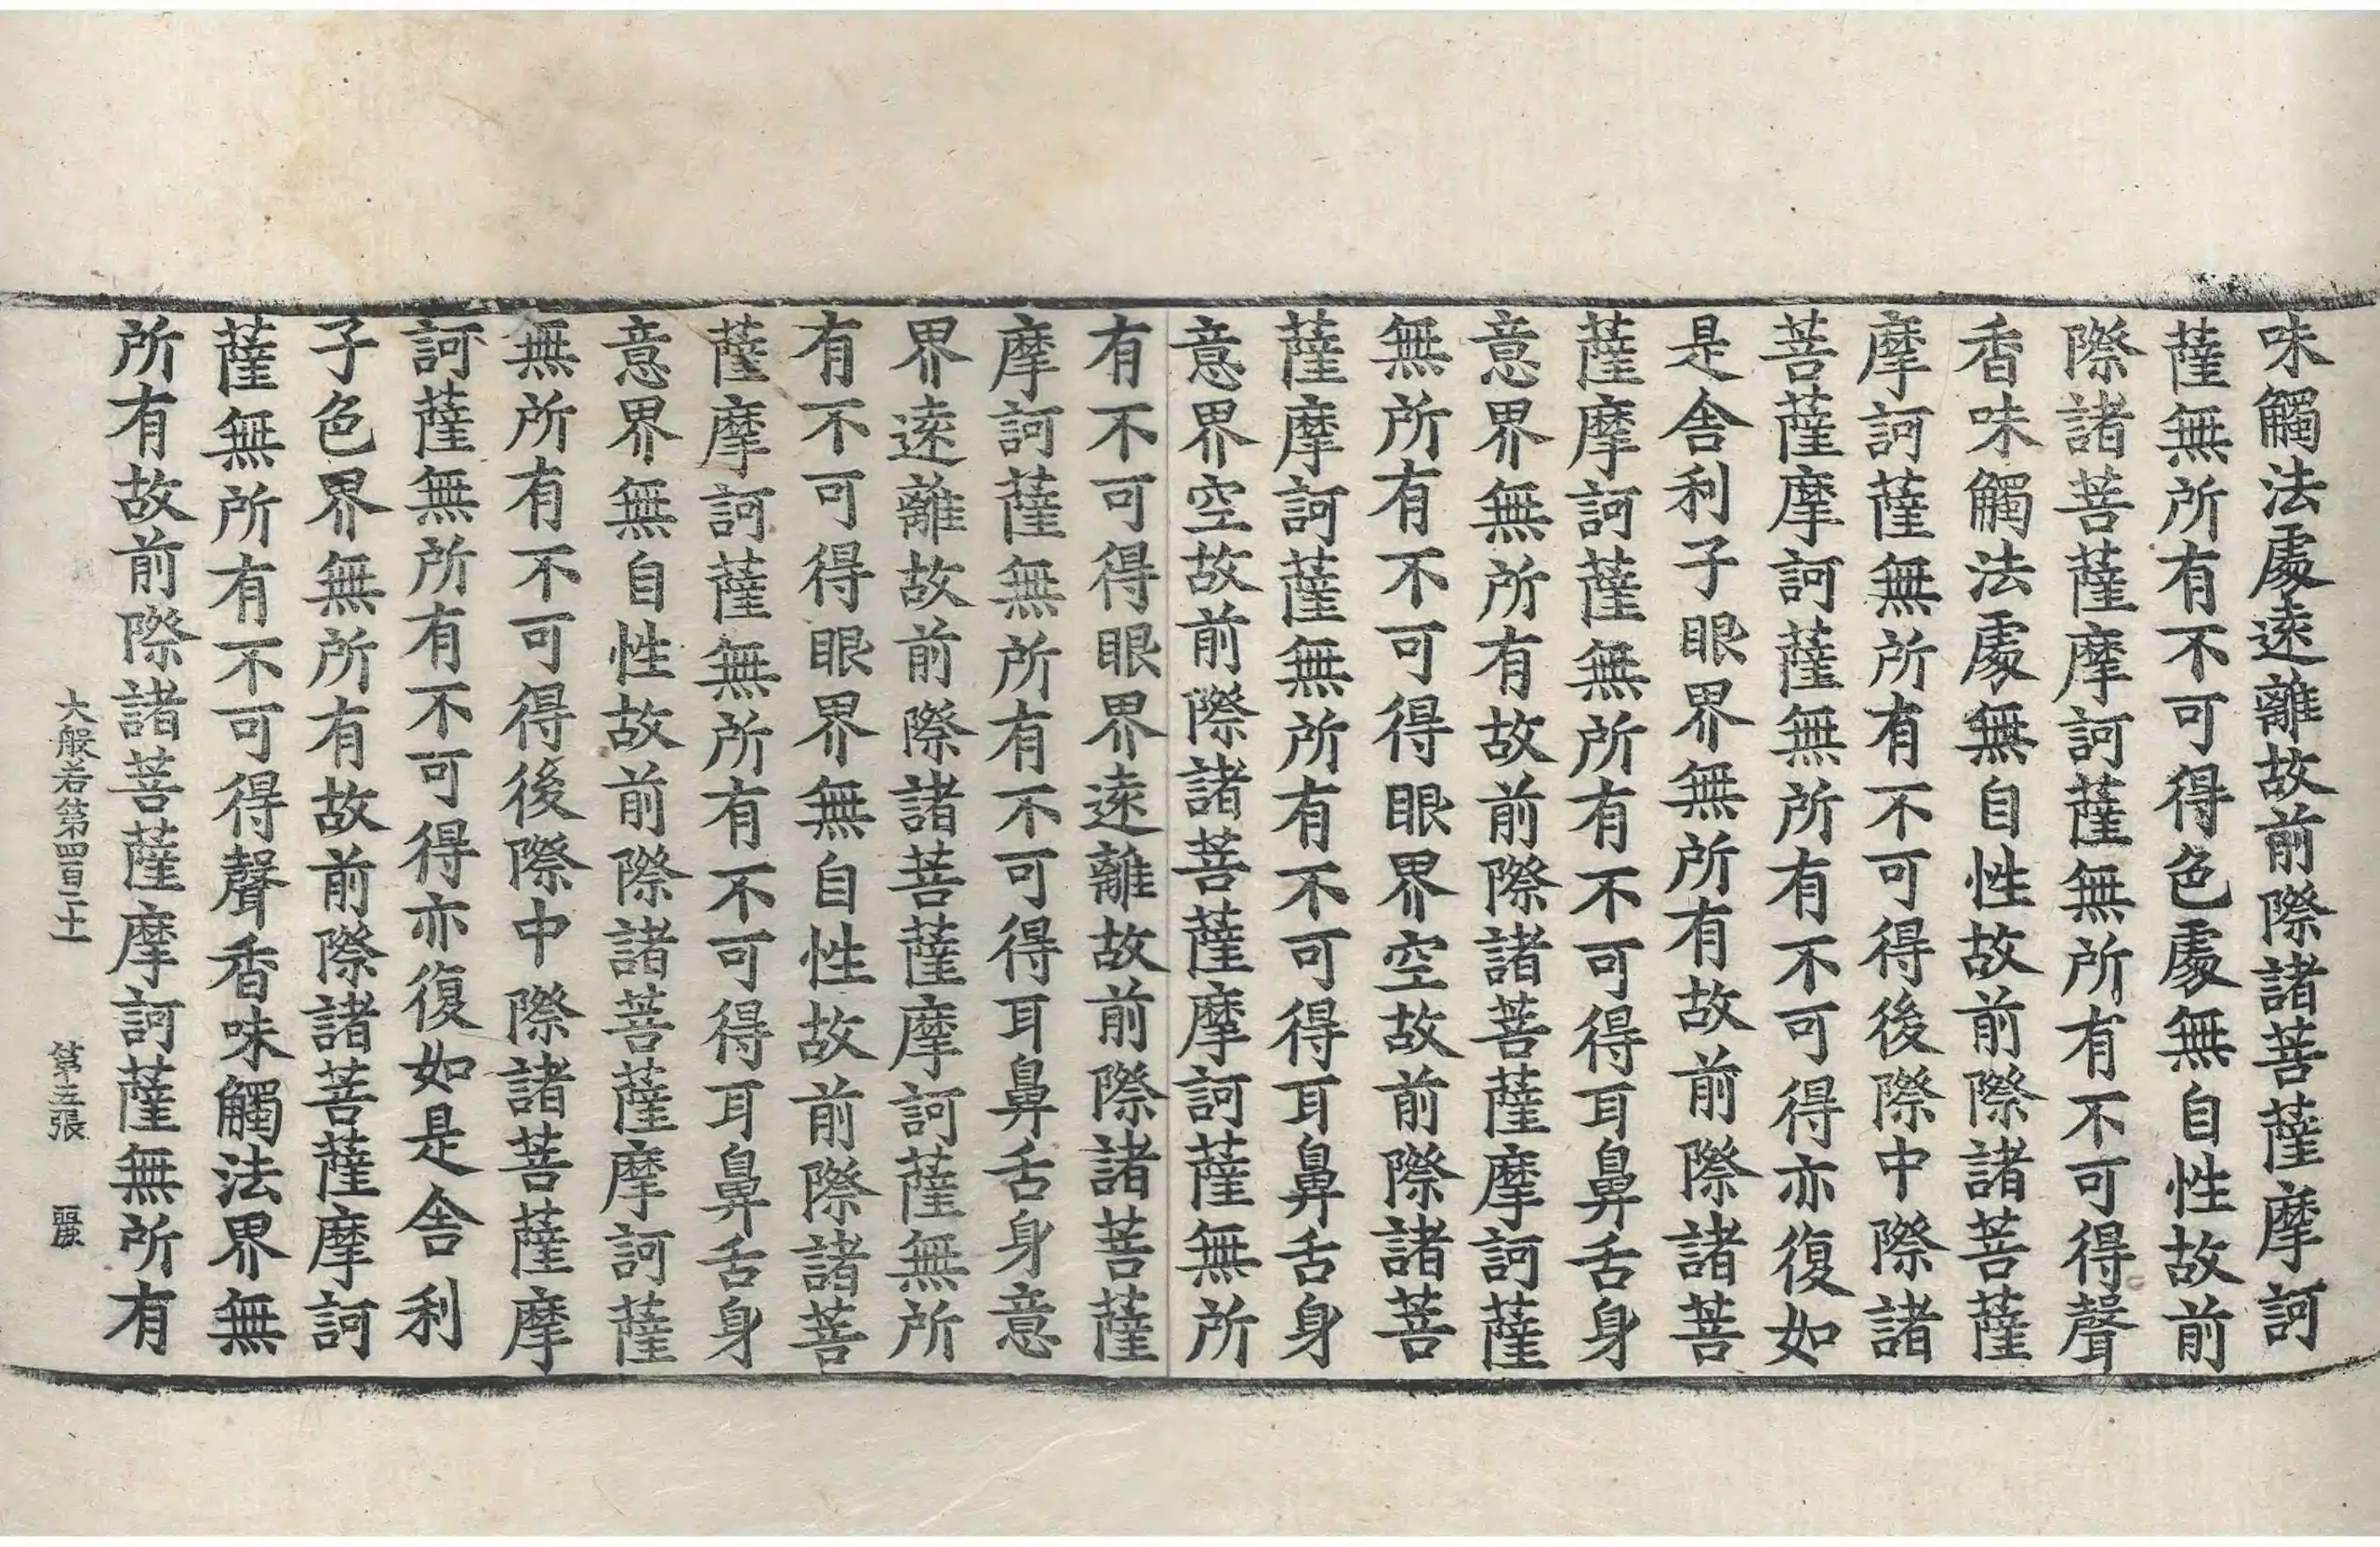 味觸法處遠離故前際諸菩薩摩訶
薩無所有不可得色處無自性故前
際諸菩薩摩訶薩無所有不可得聲
香味觸法處無自性故前際諸菩薩
摩訶薩無所有不可得後際中際諸
菩薩摩訶薩無所有不可得亦復如
是舍利子眼界無所有故前際諸菩
薩摩訶薩無所有不可得耳鼻舌身
意界無所有故前際諸菩薩摩訶薩
無所有不可得眼界空故前際諸菩
薩摩訶薩無所有不可得耳鼻舌身
意界空故前際諸菩薩摩訶薩無所
有不可得眼界遠離故前際諸菩薩
摩訶薩無所有不可得耳鼻舌身意
界遠離故前際諸菩薩摩訶薩無所
有不可得眼界無自性故前際諸菩
薩摩訶薩無所有不可得耳鼻舌身
意界無自性故前際諸菩薩摩訶薩
無所有不可得後際中際諸菩薩摩
訶薩無所有不可得亦復如是舍利
子色界無所有故前際諸菩薩摩訶
薩無所有不可得聲香味觸法界無
所有故前際諸菩薩摩訶薩無所有
大般若第四百二十一 第五張 麗